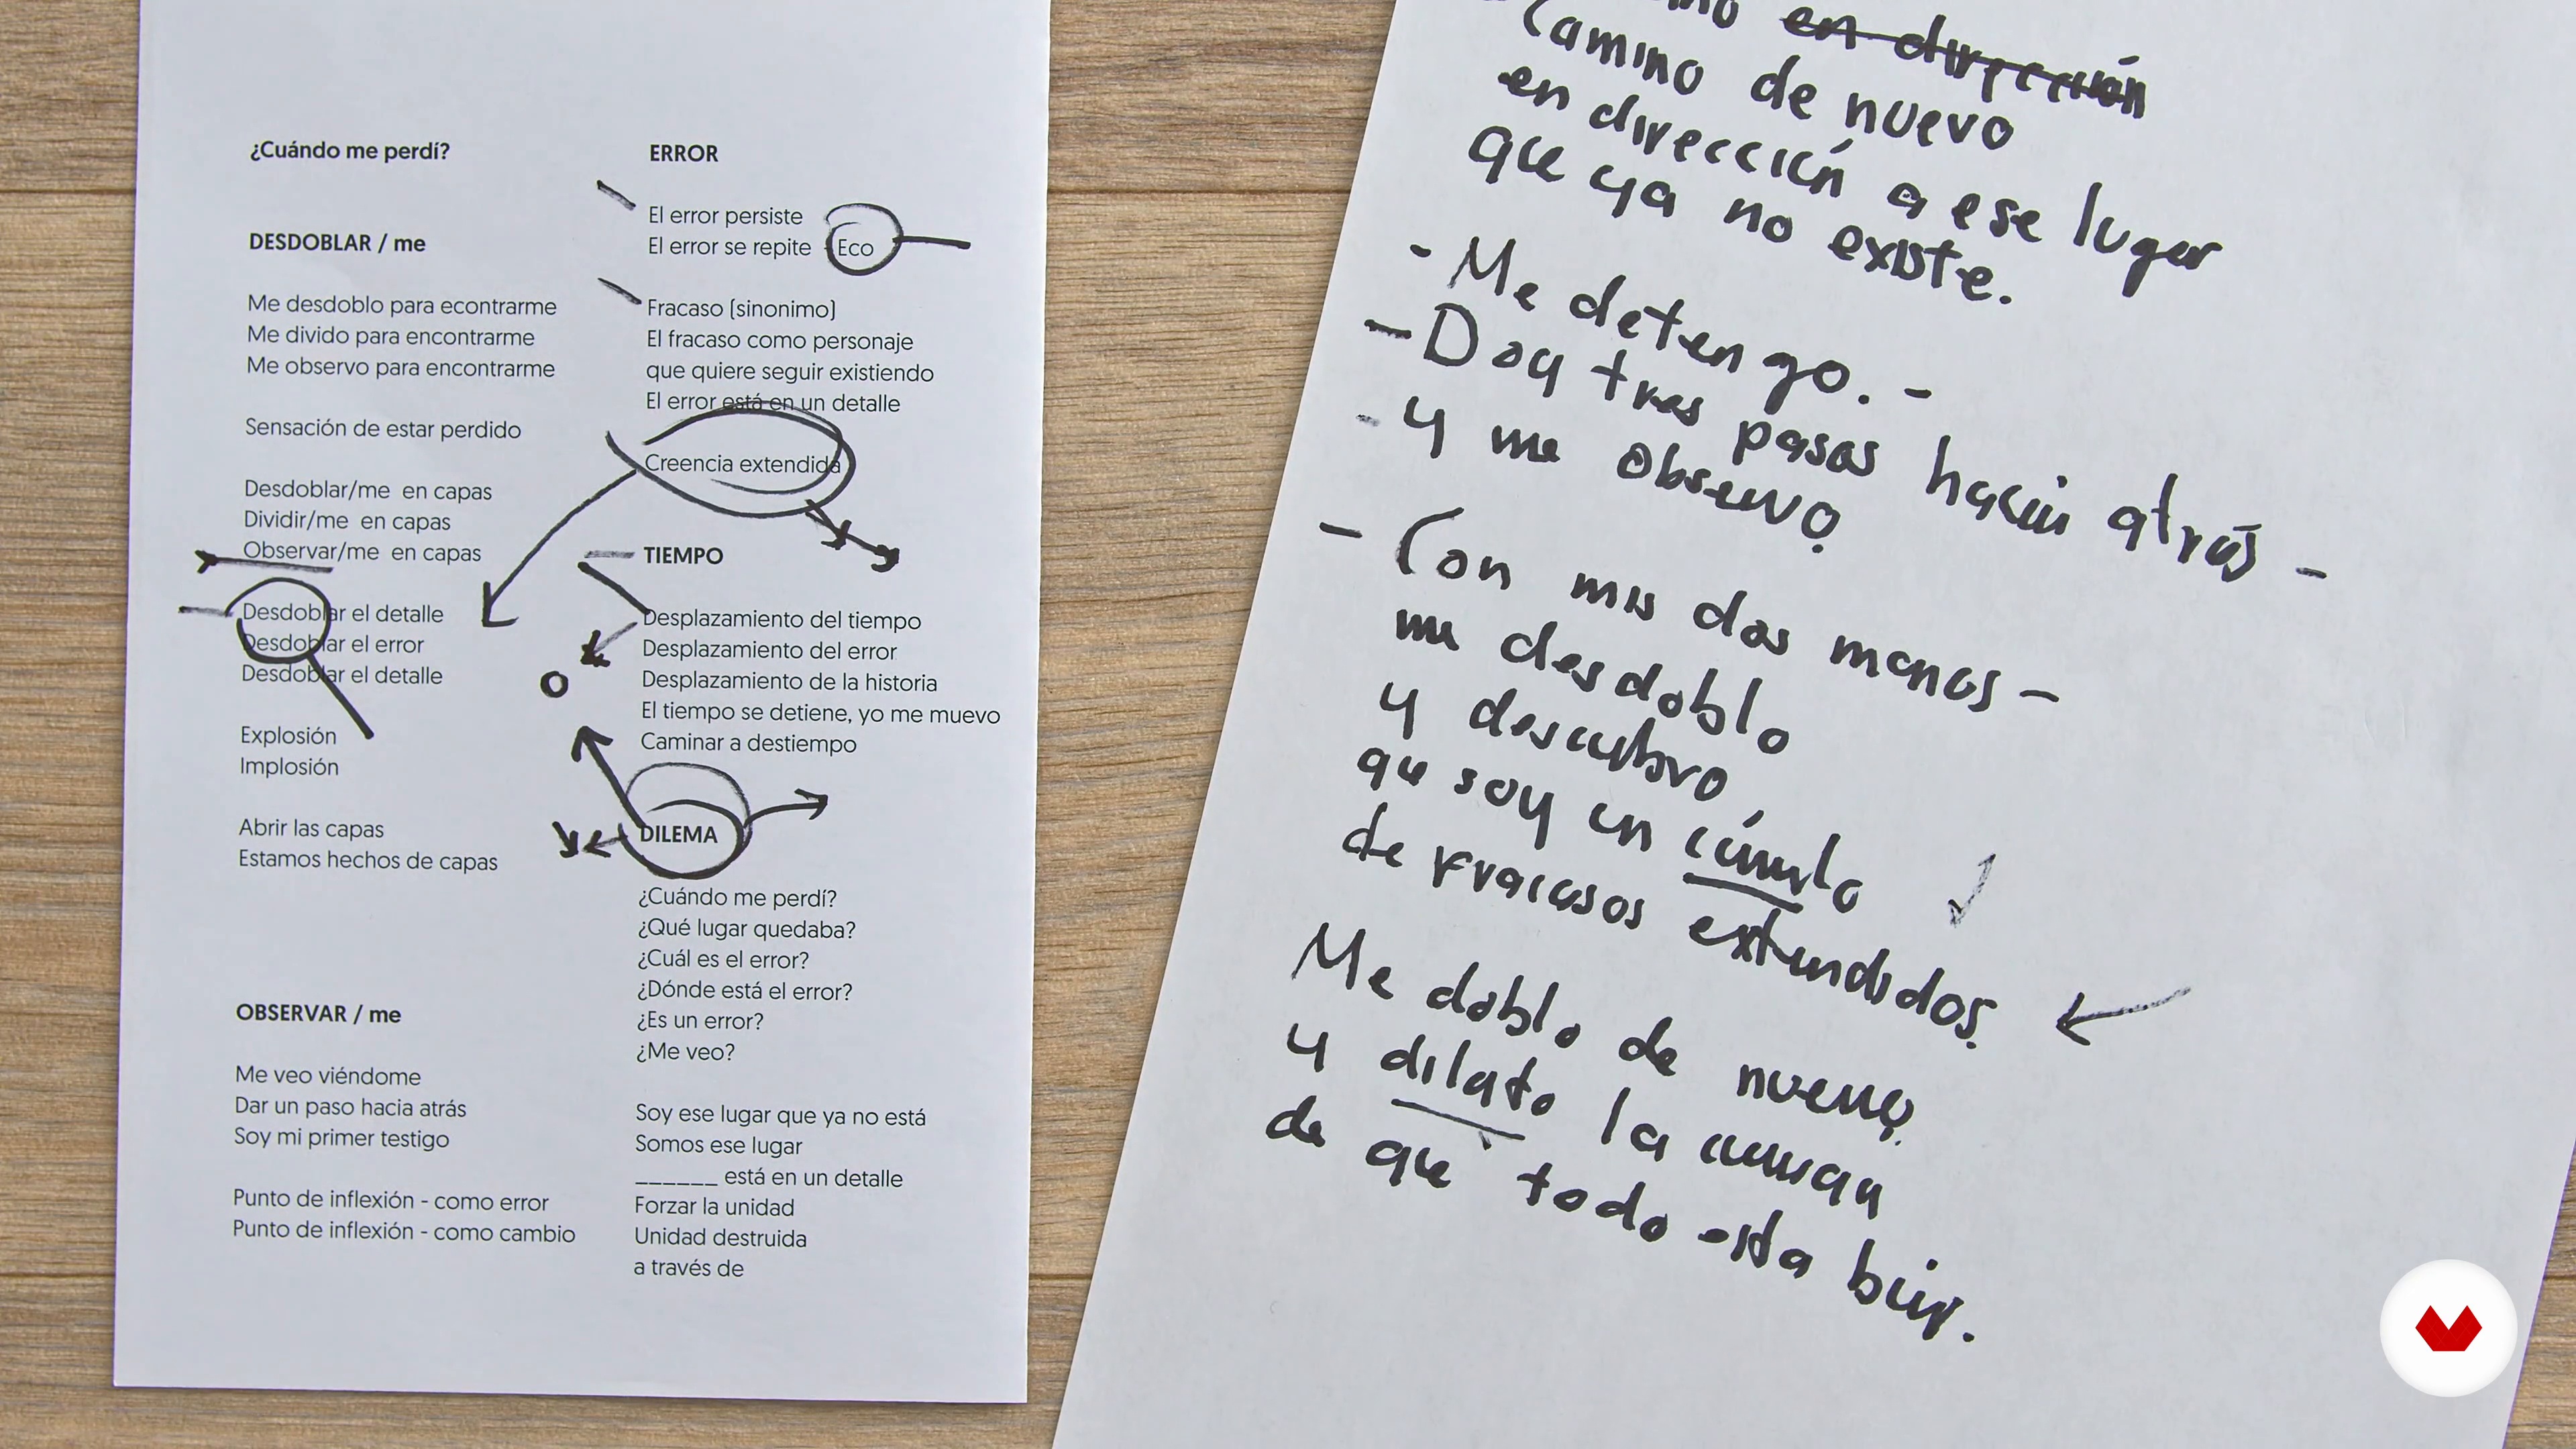 ¿Cuándo me perdí?
DESDOBLAR / me
Me desdoblo para econtrarme
Me divido para encontrarme
Me observo para encontrarme
Sensación de estar perdido
Desdoblar/me en capas
Dividir/me en capas
Observar/me en capas
Desdoblar el detalle
Desdoblar el error
Desdoblar el detalle
Explosión
Implosión
Abrir las capas
Estamos hechos de capas
OBSERVAR / me
Me veo viéndome
Dar un paso hacia atrás
Soy mi primer testigo
Punto de inflexión - como error
Punto de inflexión - como cambio
ERROR
El error persiste
El error se repite - Eco
Fracaso (sinonimo)
El fracaso como personaje
que quiere seguir existiendo
El error está en un detalle
Creencia extendida
TIEMPO
Desplazamiento del tiempo
Desplazamiento del error
Desplazamiento de la historia
El tiempo se detiene, yo me muevo
Caminar a destiempo
DILEMA
¿Cuándo me perdí?
¿Qué lugar quedaba?
¿Cuál es el error?
¿Dónde está el error?
¿Es un error?
¿Me veo?
Soy ese lugar que ya no está
Somos ese lugar
______ está en un detalle
Forzar la unidad
Unidad destruida
a través de
en dirección
Camino de nuevo
en dirección a ese lugar
que ya no existe.
- Me detengo. -
- Doy tres pasos hacia atrás -
- y me observo.
- Con mis dos manos -
me desdoblo
y descubro
que soy un cúmulo
de fracasos extendidos.
Me doblo de nuevo
y dilato la
de que todo esta bien.